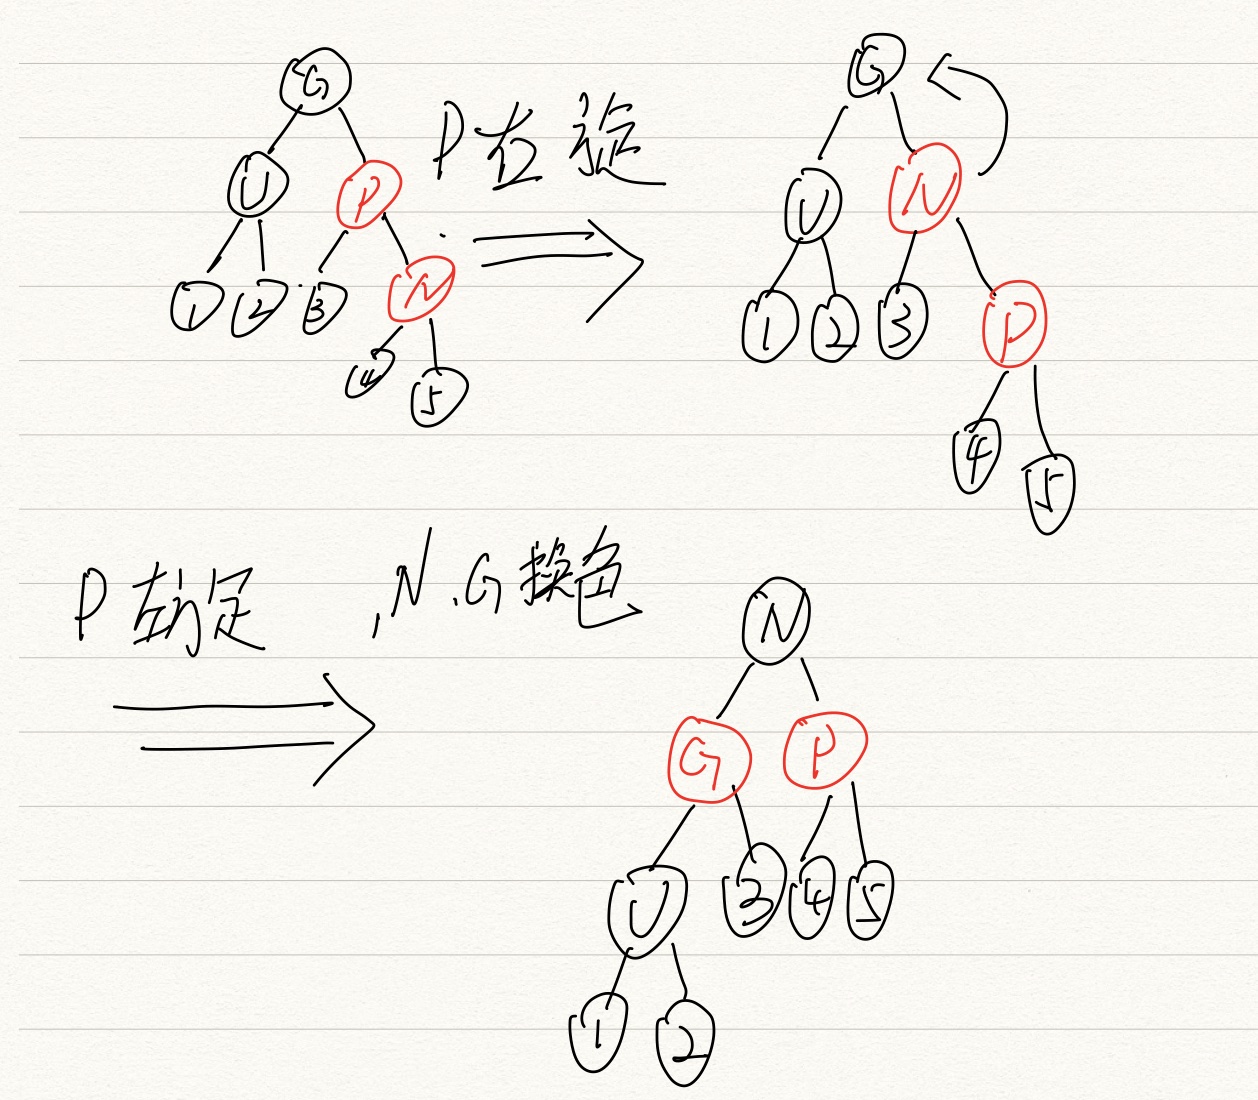 G
U P
1 2 3 N
4 5
P右旋
G
U N
1 2 3 P
4 5
P左旋,N、G换色
N
G P
U 3 4 5
1 2